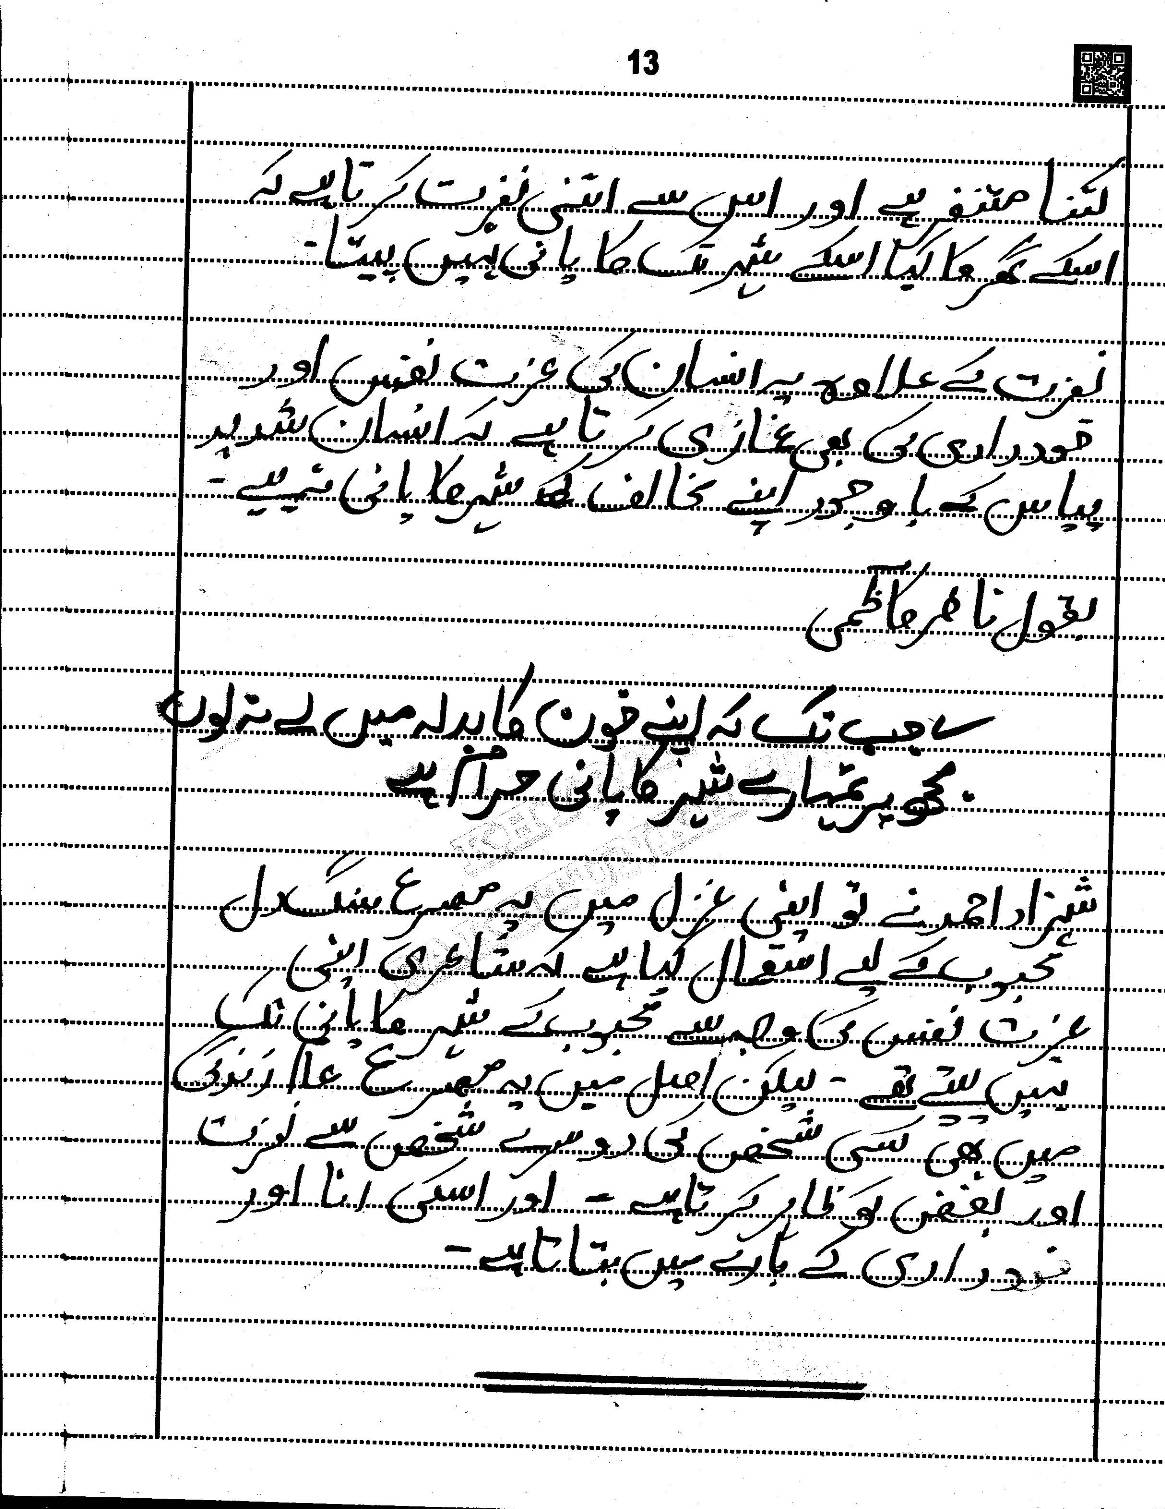 13
کتنا متنفر ہے اور اس سے اتنی نفرت کرتا ہے کہ
اسکے گھر کا کیا اسکے شہر تک کا پانی نہیں پیتا۔
نفرت کے علاوہ یہ انسان کی عزت نفس اور
خودداری کی بھی غمازی کرتا ہے کہ انسان شدید
پیاس کے باوجود اپنے مخالف کے شہر کا پانی نہ پیے۔
بقول ناصر کاظمی
؎ جب تک کہ اپنے خون کا بدلہ میں لے نہ لوں
مجھ پر تمہارے شہر کا پانی حرام ہے
شہزاد احمد نے تو اپنی غزل میں یہ مصرع سنگ دل
محبوب کے لیے استعمال کیا ہے کہ شاعری اپنی
عزت نفس کی وجہ سے محبوب کے شہر کا پانی تک
نہیں پیتے تھے۔ لیکن اصل میں یہ مصرع عام زندگی
میں بھی کسی شخص کی دوسرے شخص سے نفرت
اور بغض کو ظاہر کرتا ہے۔ اور اسکی انا اور
خودداری کے بارے میں بتاتا ہے۔